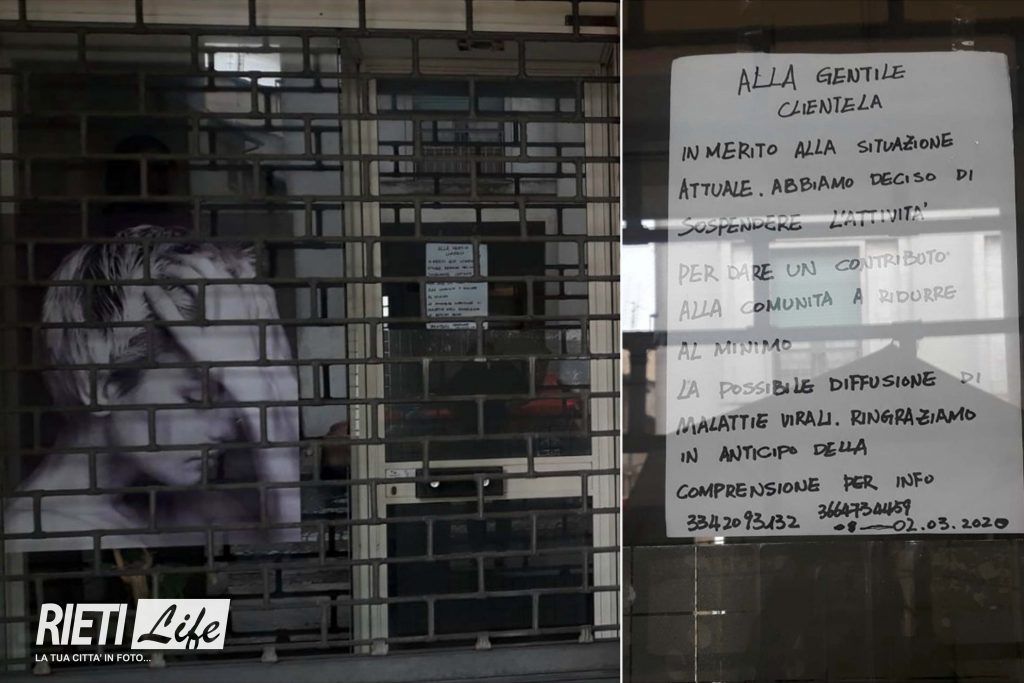 ALLA GENTILE
CLIENTELA
IN MERITO ALLA SITUAZIONE
ATTUALE. ABBIAMO DECISO DI
SOSPENDERE L'ATTIVITA'
PER DARE UN CONTRIBUTO
ALLA COMUNITA A RIDURRE
AL MINIMO
LA POSSIBILE DIFFUSIONE DI
MALATTIE VIRALI. RINGRAZIAMO
IN ANTICIPO DELLA
COMPRENSIONE PER INFO
3342093132 3664734459
02.03.2020
RIETI Life
LA TUA CITTA' IN FOTO...